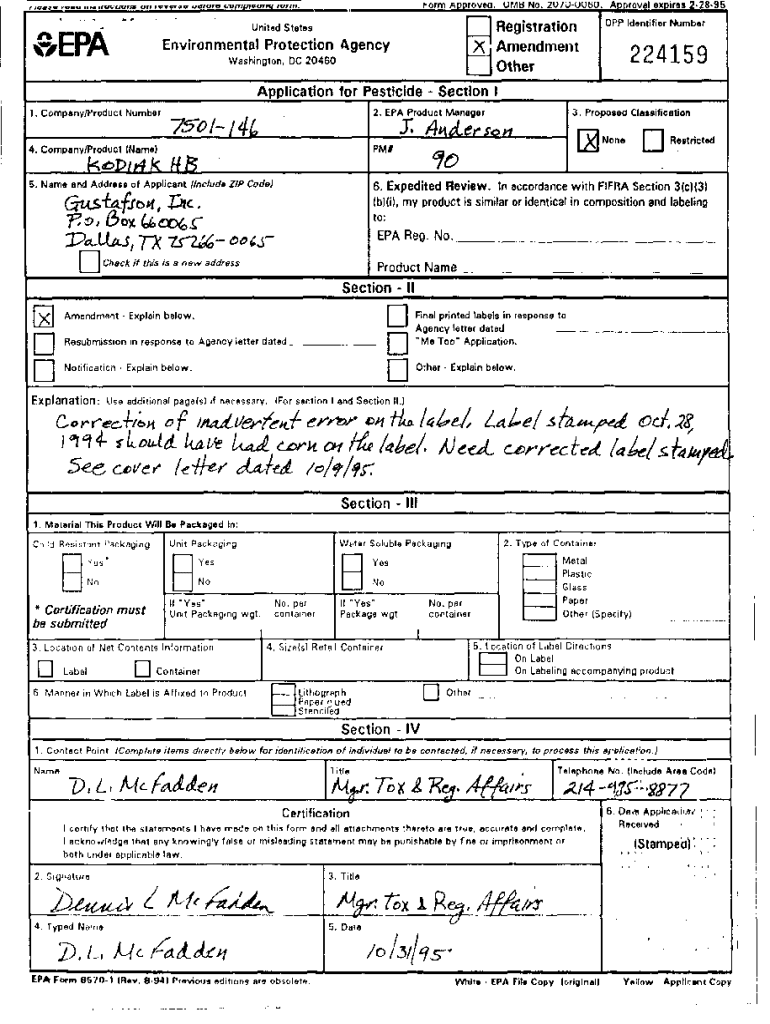 Please read instructions on reverse before completing form. Form Approved. OMB No. 2070-0060. Approval expires 2-28-95
EPA
United States
Environmental Protection Agency
Washington, DC 20460
Registration
X Amendment
Other
OPP Identifier Number
224159
Application for Pesticide - Section I
1. Company/Product Number
7501-146
2. EPA Product Manager
J. Anderson
3. Proposed Classification
X None Restricted
4. Company/Product (Name)
KODIAK HB
PM#
90
5. Name and Address of Applicant (Include ZIP Code)
Gustafson, Inc.
P.O. Box 660065
Dallas, TX 75266-0065
Check if this is a new address
6. Expedited Review. In accordance with FIFRA Section 3(c)(3)
(b)(i), my product is similar or identical in composition and labeling
to:
EPA Reg. No.
Product Name
Section - II
X Amendment - Explain below.
Resubmission in response to Agency letter dated
Notification - Explain below.
Final printed labels in response to
Agency letter dated
"Me Too" Application.
Other - Explain below.
Explanation: Use additional page(s) if necessary. (For section I and Section II.)
Correction of inadvertent error on the label. Label stamped Oct. 28,
1994 should have had corn on the label. Need corrected label stamped.
See cover letter dated 10/9/95.
Section - III
1. Material This Product Will Be Packaged In:
Child Resistant Packaging
Yes*
No
* Certification must
be submitted
Unit Packaging
Yes
No
If "Yes" No. per
Unit Packaging wgt. container
Water Soluble Packaging
Yes
No
If "Yes" No. per
Package wgt container
2. Type of Container
Metal
Plastic
Glass
Paper
Other (Specify)
3. Location of Net Contents Information
Label Container
4. Size(s) Retail Container
5. Location of Label Directions
On Label
On Labeling accompanying product
6. Manner in Which Label is Affixed to Product
Lithograph
Paper glued
Stenciled
Other
Section - IV
1. Contact Point (Complete items directly below for identification of individual to be contacted, if necessary, to process this application.)
Name
D. L. McFadden
Title
Mgr. Tox & Reg. Affairs
Telephone No. (Include Area Code)
214-985-8877
Certification
I certify that the statements I have made on this form and all attachments thereto are true, accurate and complete.
I acknowledge that any knowingly false or misleading statement may be punishable by fine or imprisonment or
both under applicable law.
6. Date Application
Received
(Stamped)
2. Signature
Dennis L McFadden
3. Title
Mgr. Tox & Reg. Affairs
4. Typed Name
D. L. McFadden
5. Date
10/31/95
EPA Form 8570-1 (Rev. 8-94) Previous editions are obsolete. White - EPA File Copy (original) Yellow - Applicant Copy